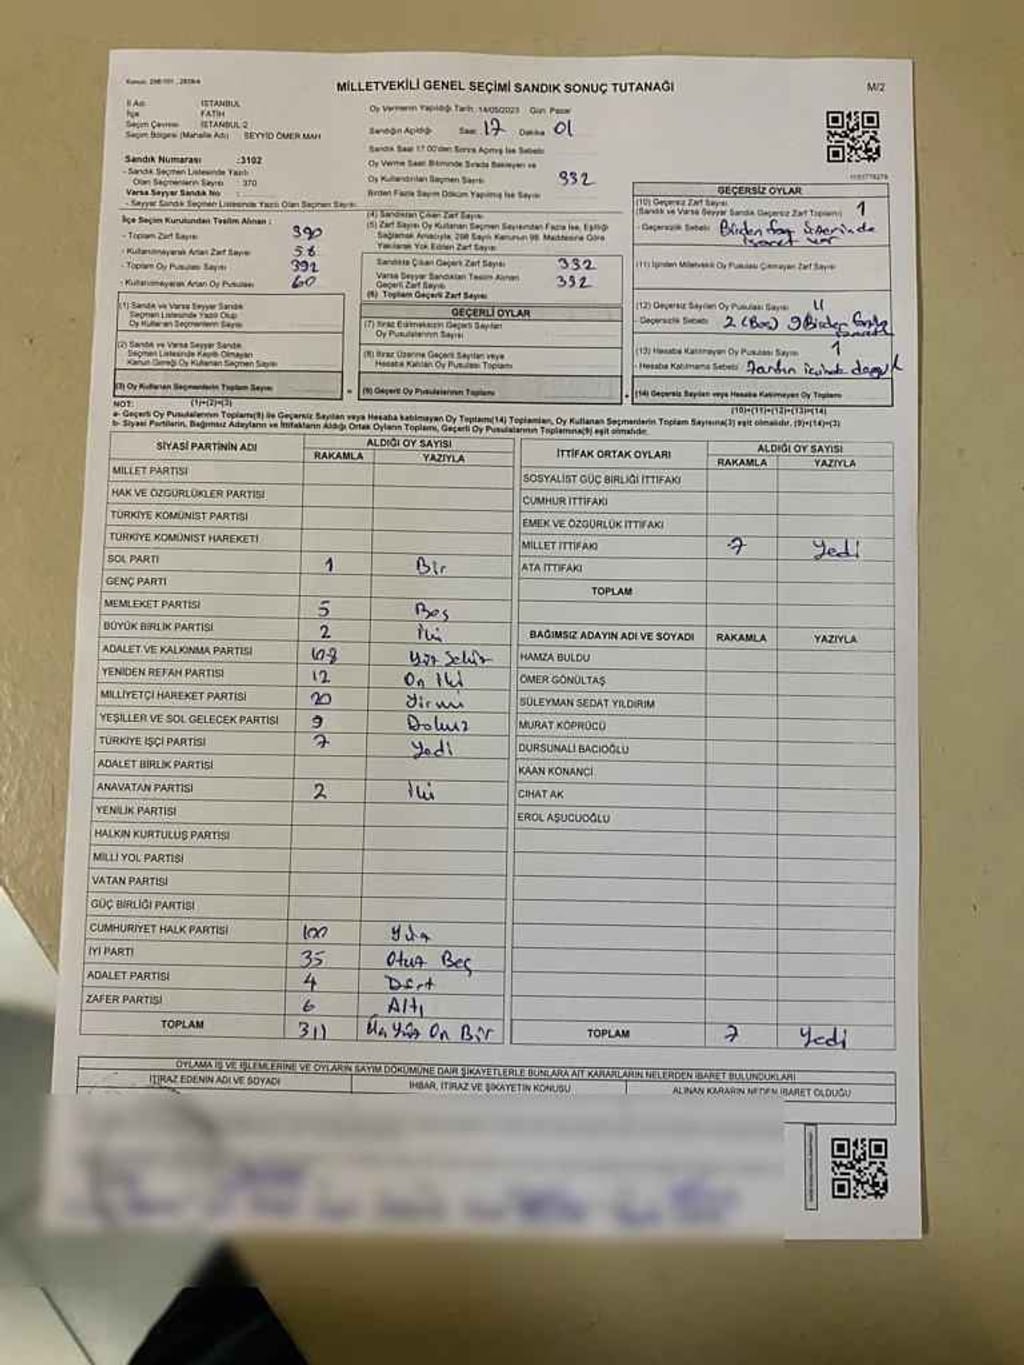 MİLLETVEKİLİ GENEL SEÇİMİ SANDIK SONUÇ TUTANAĞI
M/2
İl Adı : İSTANBUL
İlçe : FATİH
Seçim Çevresi : İSTANBUL-2
Seçim Bölgesi (Mahalle Adı) : SEYYİD ÖMER MAH
Sandık Numarası :3102
- Sandık Seçmen Listesinde Yazılı
Olan Seçmenlerin Sayısı : 370
Varsa Seyyar Sandık No :
- Seyyar Sandık Seçmen Listesinde Yazılı Olan Seçmen Sayısı:
Oy Vermenin Yapıldığı Tarih: 14/05/2023 Gün: Pazar
Sandığın Açıldığı Saat 17 Dakika 01
Sandık Saat 17.00'den Sonra Açılmış İse Sebebi
Oy Verme Saati Bitiminde Sırada Bekleyen ve
Oy Kullandırılan Seçmen Sayısı 332
Birden Fazla Sayım Döküm Yapılmış İse Sayısı
İlçe Seçim Kurulundan Teslim Alınan :
- Toplam Zarf Sayısı 390
- Kullanılmayarak Artan Zarf Sayısı 58
- Toplam Oy Pusulası Sayısı 392
- Kullanılmayarak Artan Oy Pusulası 60
(1) Sandık ve Varsa Seyyar Sandık
Seçmen Listesinde Yazılı Olup
Oy Kullanan Seçmenlerin Sayısı
(2) Sandık ve Varsa Seyyar Sandık
Seçmen Listesinde Kayıtlı Olmayan
Kanun Gereği Oy Kullanan Seçmen Sayısı
(3) Oy Kullanan Seçmenlerin Toplam Sayısı
(1)+(2)=(3)
(4) Sandıktan Çıkan Zarf Sayısı
(5) Zarf Sayısı Oy Kullanan Seçmen Sayısından Fazla İse, Eşitliği
Sağlamak Amacıyla, 298 Sayılı Kanunun 98. Maddesine Göre
Yakılarak Yok Edilen Zarf Sayısı
Sandıkta Çıkan Geçerli Zarf Sayısı 332
Varsa Seyyar Sandıktan Teslim Alınan
Geçerli Zarf Sayısı 332
(6) Toplam Geçerli Zarf Sayısı
GEÇERLİ OYLAR
(7) İtiraz Edilmeksizin Geçerli Sayılan
Oy Pusulalarının Sayısı
(8) İtiraz Üzerine Geçerli Sayılan veya
Hesaba Katılan Oy Pusulaları Toplamı
(9) Geçerli Oy Pusulalarının Toplamı
GEÇERSİZ OYLAR
(10) Geçersiz Zarf Sayısı
(Sandık ve Varsa Seyyar Sandık Geçersiz Zarf Toplamı) 1
- Geçersizlik Sebebi
(11) İçinden Milletvekili Oy Pusulası Çıkmayan Zarf Sayısı
(12) Geçersiz Sayılan Oy Pusulası Sayısı 11
- Geçersizlik Sebebi 2 (Boş) 9 Birden fazla
(13) Hesaba Katılmayan Oy Pusulası Sayısı 1
- Hesaba Katılmama Sebebi Zarfın içinde
(14) Geçersiz Sayılan veya Hesaba Katılmayan Oy Toplamı
(10)+(11)+(12)+(13)=(14)
NOT:
a- Geçerli Oy Pusulalarının Toplamı(9) ile Geçersiz Sayılan veya Hesaba katılmayan Oy Toplamı(14) Toplamları, Oy Kullanan Seçmenlerin Toplam Sayısına(3) eşit olmalıdır. (9)+(14)=(3)
b- Siyasi Partilerin, Bağımsız Adayların ve İttifakların Aldığı Ortak Oyların Toplamı, Geçerli Oy Pusulalarının Toplamına(9) eşit olmalıdır.
SİYASİ PARTİNİN ADI ALDIĞI OY SAYISI
RAKAMLA YAZIYLA
MİLLET PARTİSİ
HAK VE ÖZGÜRLÜKLER PARTİSİ
TÜRKİYE KOMÜNİST PARTİSİ
TÜRKİYE KOMÜNİST HAREKETİ
SOL PARTİ 1 Bir
GENÇ PARTİ
MEMLEKET PARTİSİ 5 Beş
BÜYÜK BİRLİK PARTİSİ 2 İki
ADALET VE KALKINMA PARTİSİ 108 Yüz Sekiz
YENİDEN REFAH PARTİSİ 12 On İki
MİLLİYETÇİ HAREKET PARTİSİ 20 Yirmi
YEŞİLLER VE SOL GELECEK PARTİSİ 9 Dokuz
TÜRKİYE İŞÇİ PARTİSİ 7 Yedi
ADALET BİRLİK PARTİSİ
ANAVATAN PARTİSİ 2 İki
YENİLİK PARTİSİ
HALKIN KURTULUŞ PARTİSİ
MİLLİ YOL PARTİSİ
VATAN PARTİSİ
GÜÇ BİRLİĞİ PARTİSİ
CUMHURİYET HALK PARTİSİ 100 Yüz
İYİ PARTİ 35 Otuz Beş
ADALET PARTİSİ 4 Dört
ZAFER PARTİSİ 6 Altı
TOPLAM 311 Üç Yüz On Bir
İTTİFAK ORTAK OYLARI ALDIĞI OY SAYISI
RAKAMLA YAZIYLA
SOSYALİST GÜÇ BİRLİĞİ İTTİFAKI
CUMHUR İTTİFAKI
EMEK VE ÖZGÜRLÜK İTTİFAKI
MİLLET İTTİFAKI 7 Yedi
ATA İTTİFAKI
TOPLAM
BAĞIMSIZ ADAYIN ADI VE SOYADI RAKAMLA YAZIYLA
HAMZA BULDU
ÖMER GÖNÜLTAŞ
SÜLEYMAN SEDAT YILDIRIM
MURAT KÖPRÜCÜ
DURSUNALİ BACIOĞLU
KAAN KONANCI
CİHAT AK
EROL AŞUCUOĞLU
TOPLAM 7 Yedi
OYLAMA İŞ VE İŞLEMLERİNE VE OYLARIN SAYIM DÖKÜMÜNE DAİR ŞİKAYETLERLE BUNLARA AİT KARARLARIN NELERDEN İBARET BULUNDUKLARI
İTİRAZ EDENİN ADI VE SOYADI İHBAR, İTİRAZ VE ŞİKAYETİN KONUSU ALINAN KARARIN NEDEN İBARET OLDUĞU